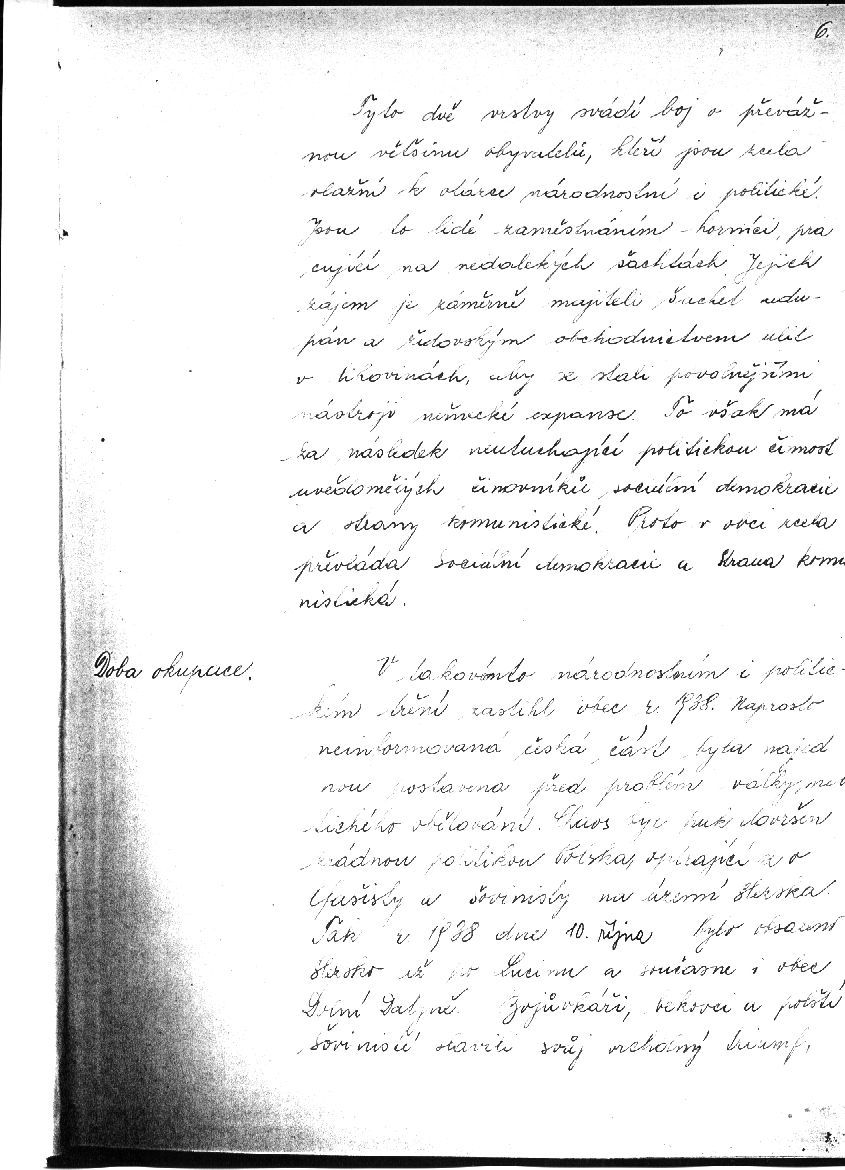 6.
Tyto dvě vrstvy svádí boj o převáž-
nou většinu obyvatelů, kteří jsou zcela
vlažní k otázce národnostní i politické.
Jsou to lidé zaměstnáním horníci, pra
cující na nedalekých šachtách. Jejich
zájem je záměrně majiteli šachet
pán a židovským obchodnictvem
v lihovinách, aby se stali povolnějšími
nástroji německé expanse. To však má
za následek neutuchající politickou činost
uvědomělých činovníků sociální demokracie
a strany komunistické. Proto v obci zcela
převláda Sociální demokracie a Strana komu
nistická.
Doba okupace.
V takovémto národnostním i politic-
kém tření zastihl obec r. 1938. Naprosto
neinformovaná česká část byla najed
nou postavena před problém války,
lického obětování. Chaos byl pak dovršen
zrádnou politikou Polska, opírající a o
fašisty a šovinisty na území Slezska.
Tak r. 1938 dne 10. října bylo obsazeno
Slezsko až po Lucinu a současne i obec
Dolní Datyně. Bojůvkáři, bekovci a polští
šovinisté slavili svůj vrcholný triumf,